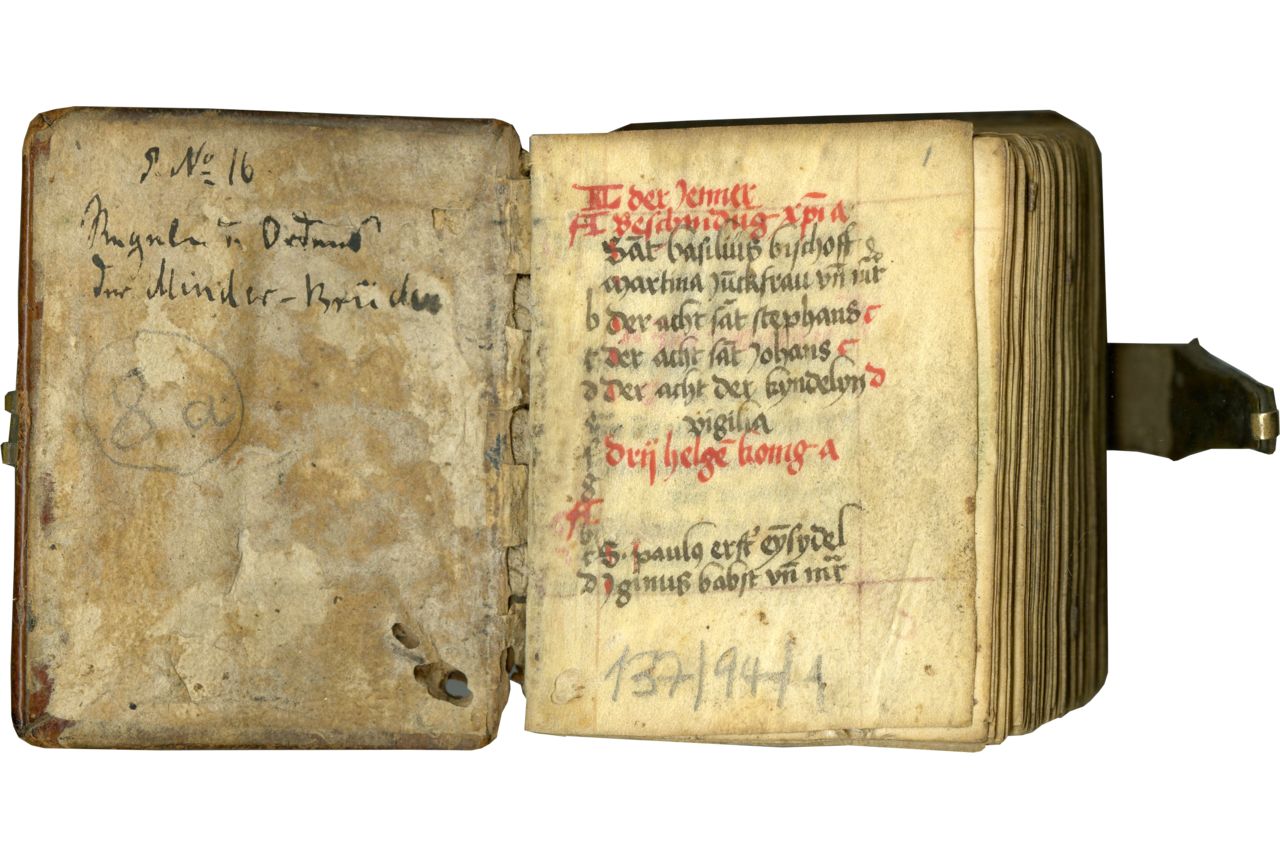 S. No 16
Regula u. Ordens
der Minder-Brüder
8 a
1
KL der Jenner
A Beschnidūg xp̄i a
Sāt basilius bischoff
Martina Jūckfrau vn̄ mr̄
b der acht sāt stephans c
c der acht sāt Johans c
d der acht der kyndelyn d
e vigilia
f drij helgē konig a
g
A
b
c S. paulꝯ erst eȳsydel
d Jginus babst vn̄ mr̄
137/94/1